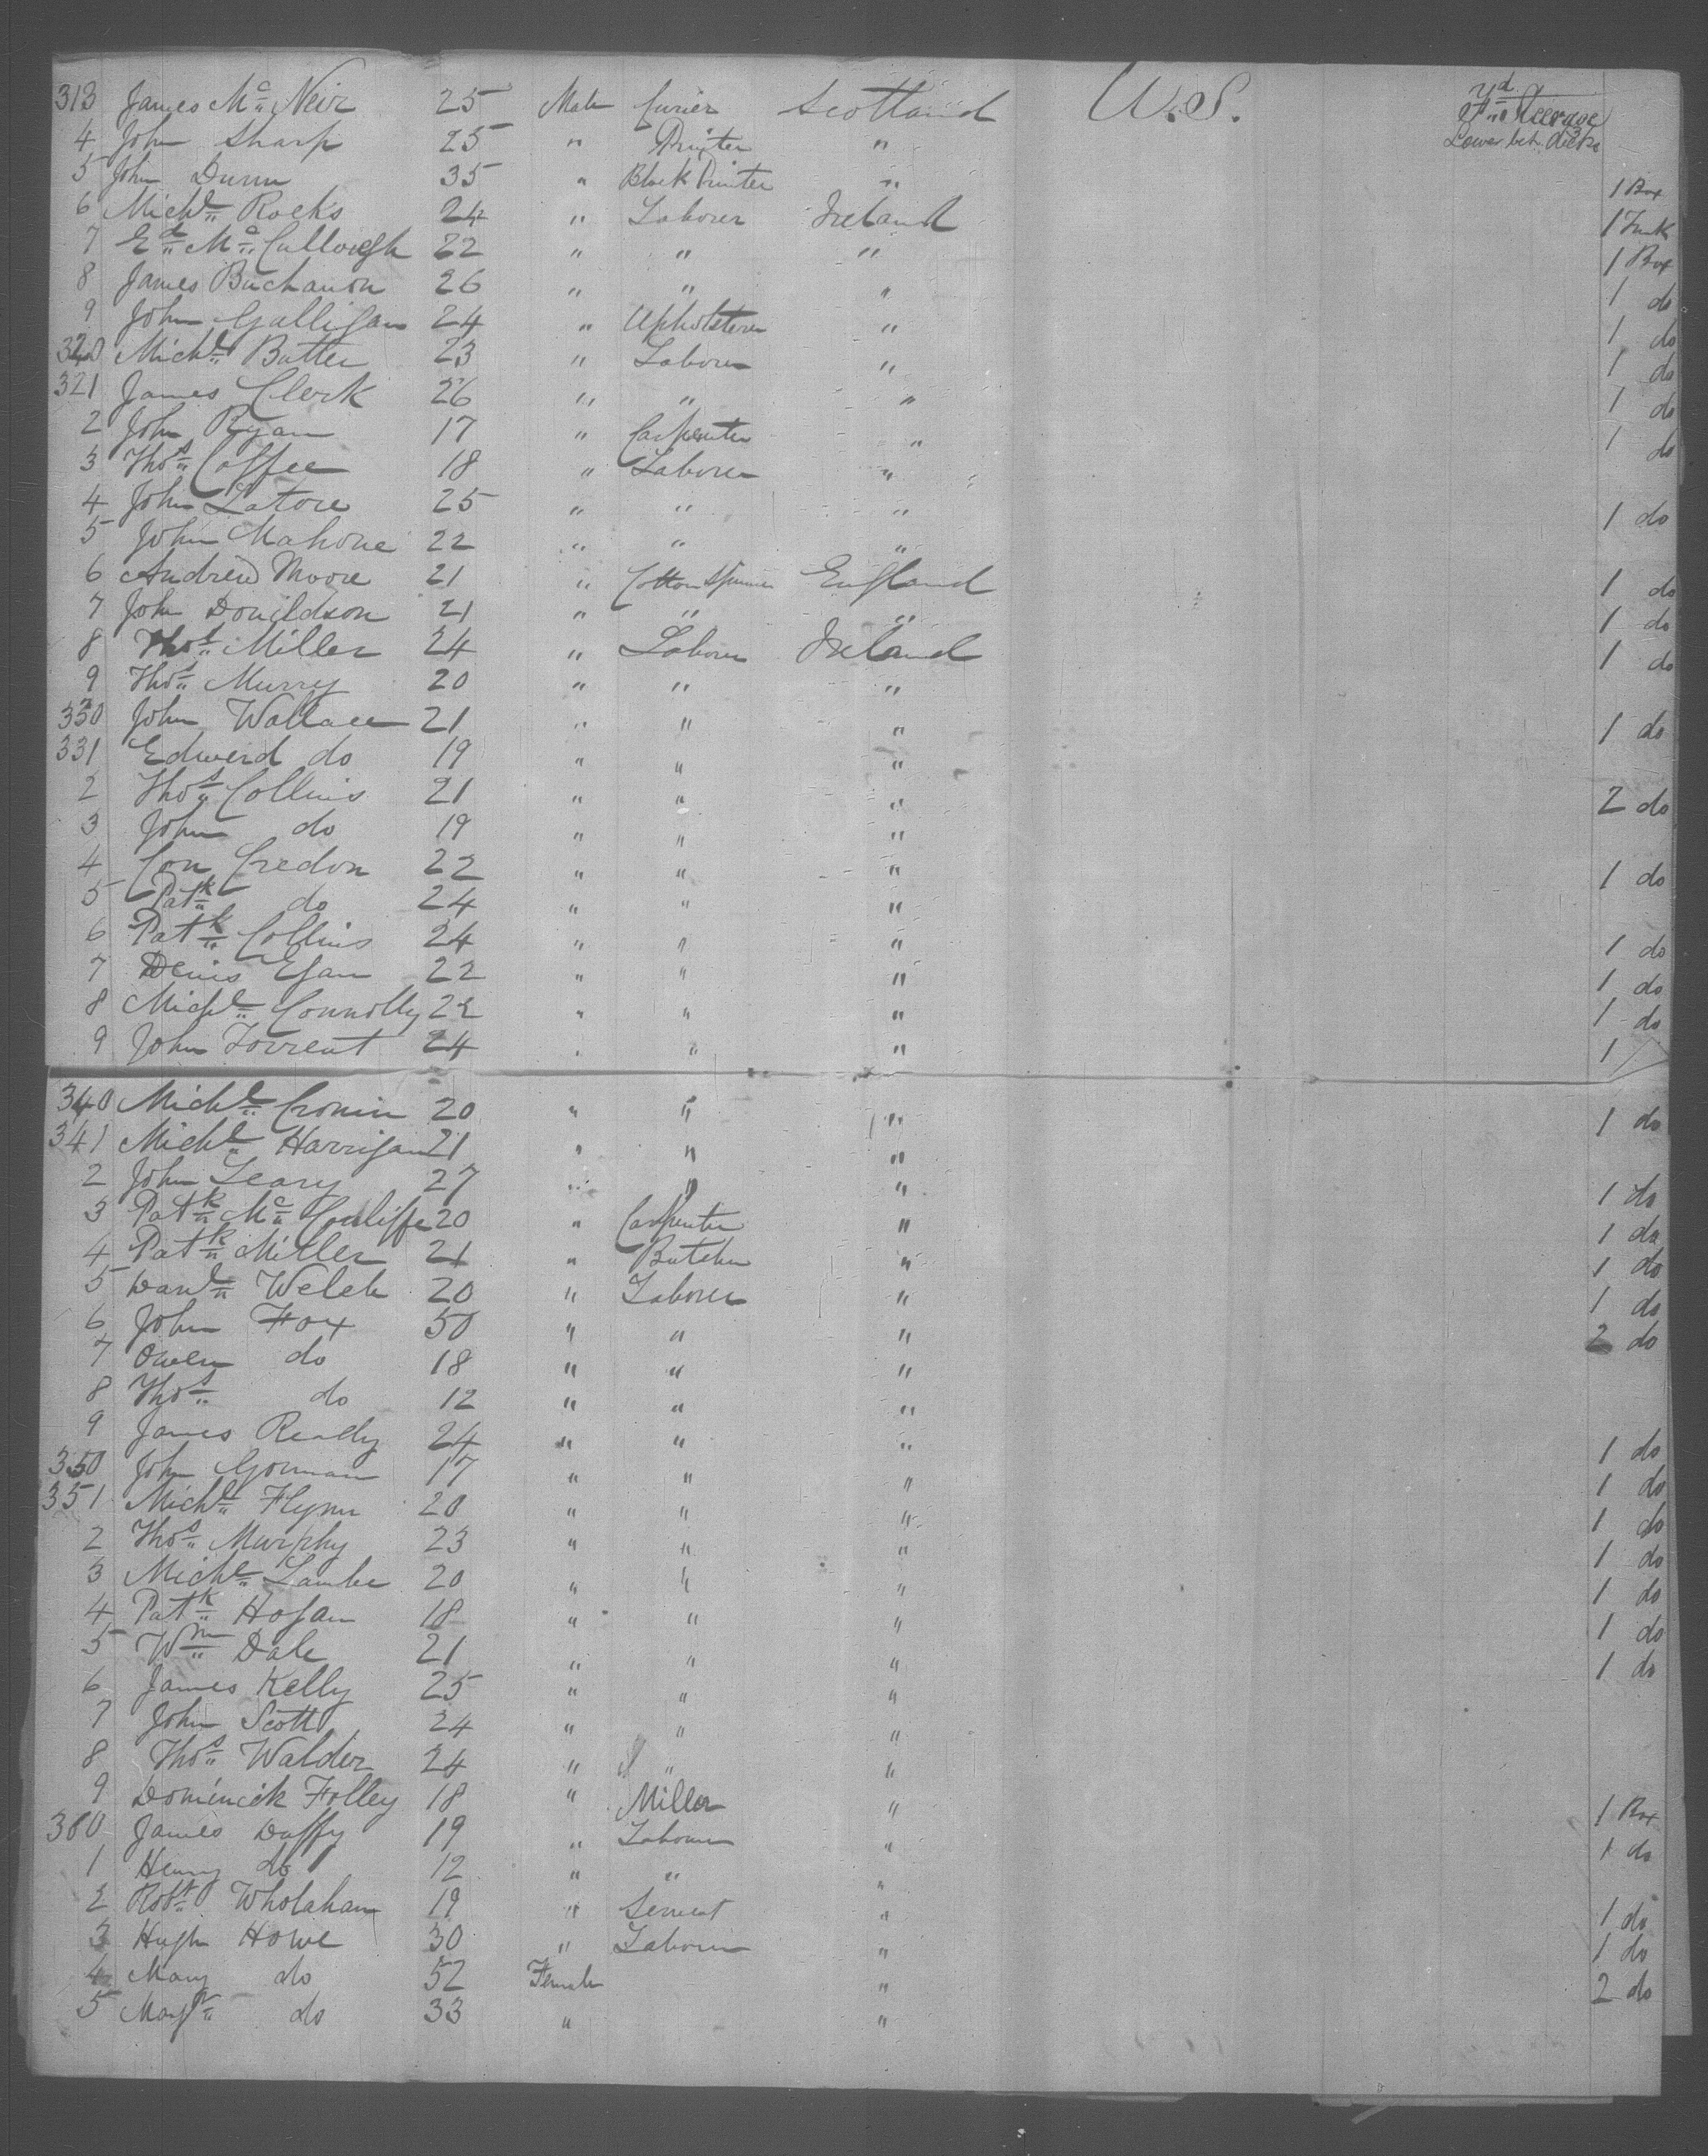 313 James Mc Neir 25 Male Currier Scotland U.S. Fwd Steerage
4 John Sharp 25 " Printer " Lower bet. decks
5 John Dunn 35 " Block Printer " 1 Box
6 Michl Rocks 24 " Laborer Ireland 1 Trunk
7 Ed Mc Cullough 22 " " " 1 Box
8 James Buchanon 26 " " " 1 do
9 John Galligan 24 " Upholsterer " 1 do
320 Michl Butter 23 " Laborer " 1 do
321 James Clerk 26 " " " 1 do
2 John Ryan 17 " Carpenter " 1 do
3 Thos Coffee 18 " Laborer "
4 John Latore 25 " " " 1 do
5 John Mahone 22 " " "
6 Andrew Moore 21 " Cotton Spinner England 1 do
7 John Donildson 21 " " " 1 do
8 Thos Miller 24 " Laborer Ireland 1 do
9 Thos Murry 20 " " "
330 John Wallace 21 " " " 1 do
331 Edwerd do 19 " " "
2 Thos Collins 21 " " " 2 do
3 John do 19 " " "
4 Con Credon 22 " " " 1 do
5 Patk do 24 " " "
6 Patk Collins 24 " " " 1 do
7 Denis Egan 22 " " " 1 do
8 Michl Connolly 22 " " " 1 do
9 John Torrent 24 " " " 1
340 Michl Cronin 20 " " " 1 do
341 Michl Harrigan 21 " " "
2 John Leary 27 " " " 1 do
3 Patk Mc Couliffe 20 " Carpenter " 1 do
4 Patk Miller 21 " Butcher " 1 do
5 Danl Welch 20 " Laborer " 1 do
6 John Fox 50 " " " 2 do
7 Owen do 18 " " "
8 Thos do 12 " " "
9 James Ready 24 " " " 1 do
350 John Gorman 17 " " " 1 do
351 Michl Flynn 20 " " " 1 do
2 Thos Murphy 23 " " " 1 do
3 Michl Lambe 20 " " " 1 do
4 Patk Hogan 18 " " " 1 do
5 Wm Dale 21 " " " 1 do
6 James Kelly 25 " " "
7 John Scott 24 " " "
8 Thos Walder 24 " " "
9 Domincik Folley 18 " Miller " 1 Box
360 James Duffy 19 " Laborer " 1 do
1 Henry do 12 " " "
2 Robt Wholahan 19 " Servent " 1 do
3 Hugh Howe 30 " Laborer " 1 do
4 Mary do 52 Female " 2 do
5 Margt do 33 " "